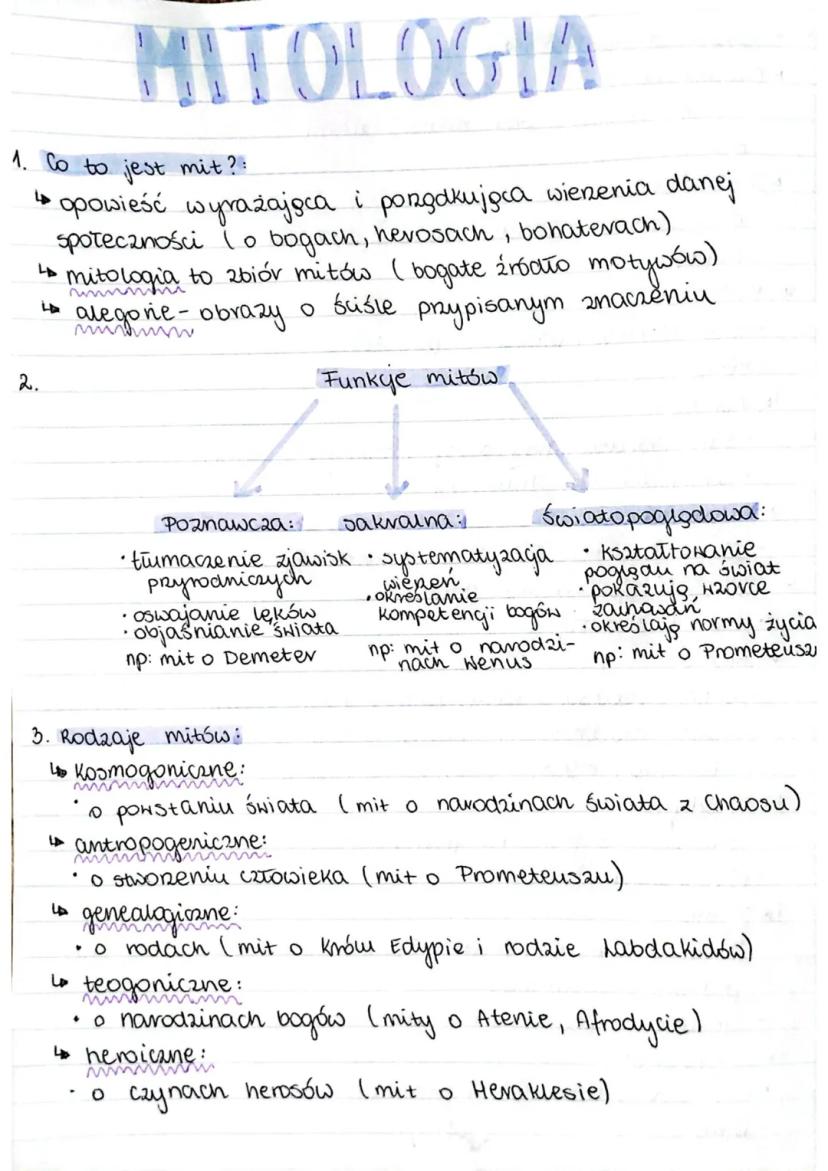 MITOLOGIA
1. Co to jest mit?:
↳ opowieść wyrażająca i porządkująca wierzenia danej
społeczności (o bogach, herosach, bohaterach)
↳ mitologia to zbiór mitów (bogate źródło motywów)
↳ alegorie - obrazy o ściśle przypisanym znaczeniu
2. Funkcje mitów
Poznawcza:
• tłumaczenie zjawisk
przyrodniczych
• oswajanie lęków
• objaśnianie świata
np: mit o Demeter
sakralna:
• systematyzacja
wierzeń
• określanie
kompetencji bogów
np: mit o narodzi-
nach Wenus
światopoglądowa:
• kształtowanie
poglądu na świat
• pokazują wzorce
zachowań
• określają normy życia
np: mit o Prometeusz
3. Rodzaje mitów:
↳ kosmogoniczne:
• o powstaniu świata (mit o narodzinach świata z Chaosu)
↳ antropogeniczne:
• o stworzeniu człowieka (mit o Prometeuszu)
↳ genealogiczne:
• o rodach (mit o królu Edypie i rodzie Labdakidów)
↳ teogoniczne:
• o narodzinach bogów (mity o Atenie, Afrodycie)
↳ heroiczne:
• o czynach herosów (mit o Heraklesie)